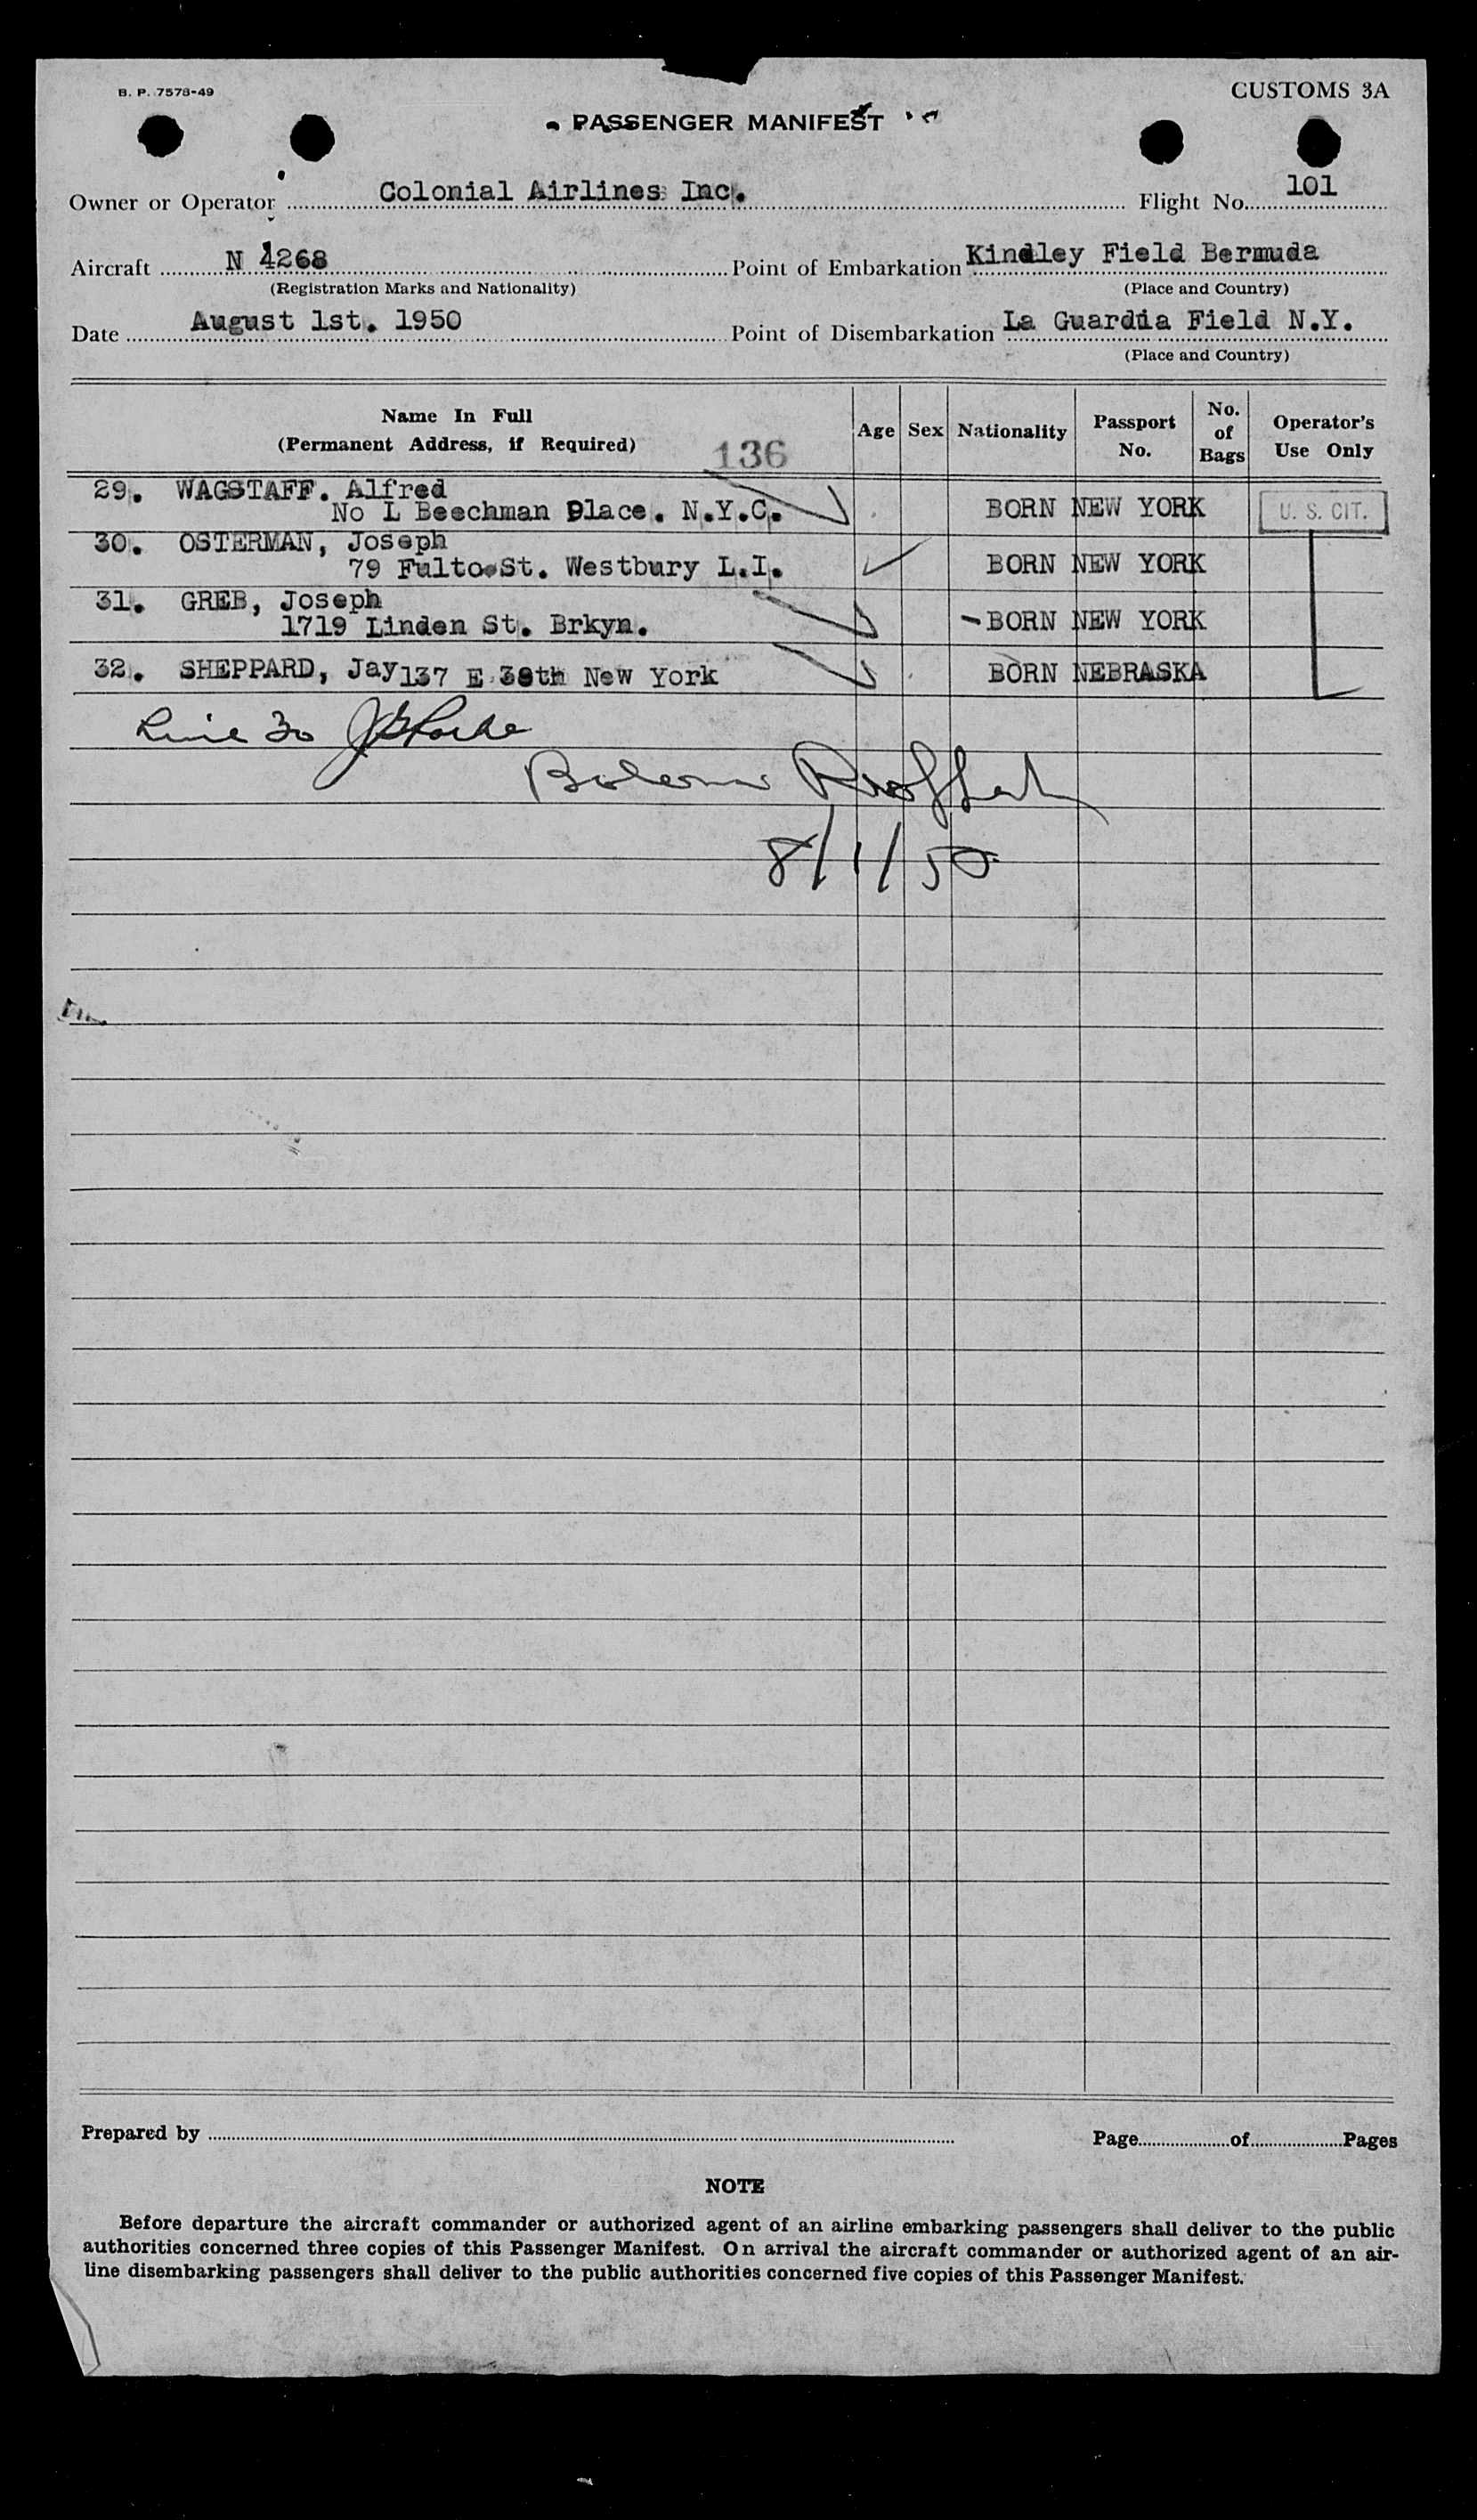 B. P. 7578-49
CUSTOMS 3A
PASSENGER MANIFEST
Owner or Operator Colonial Airlines Inc. Flight No. 101
Aircraft N 4268 Point of Embarkation Kindley Field Bermuda
(Registration Marks and Nationality) (Place and Country)
Date August 1st. 1950 Point of Disembarkation La Guardia Field N.Y.
(Place and Country)
Name In Full (Permanent Address, if Required) 136 Age Sex Nationality Passport No. No. of Bags Operator's Use Only
29. WAGSTAFF. Alfred
No L Beechman Place. N.Y.C. BORN NEW YORK U. S. CIT.
30. OSTERMAN, Joseph
79 Fulto St. Westbury L.I. BORN NEW YORK
31. GREB, Joseph
1719 Linden St. Brkyn. BORN NEW YORK
32. SHEPPARD, Jay 137 E 38th New York BORN NEBRASKA
Line 30
8/1/50
Prepared by Page of Pages
NOTE
Before departure the aircraft commander or authorized agent of an airline embarking passengers shall deliver to the public
authorities concerned three copies of this Passenger Manifest. On arrival the aircraft commander or authorized agent of an air-
line disembarking passengers shall deliver to the public authorities concerned five copies of this Passenger Manifest.